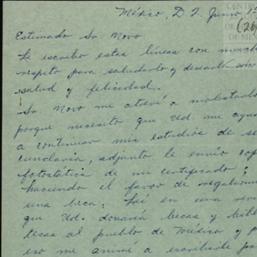 México, D. F. Junio
(26
Estimado Sr. Novo
Le escribo estas lineas con mucho
respeto para saludarlo y desearle
salud y felicidad.
Sr. Novo me atreví a molestarlo
porque necesito que Ud. me ayude
a continuar mis estudios de se-
cundaria, adjunto le envio copia
fotostática de mi certificado;
haciendo el favor de regalarme
una beca; leí en una
que Ud. donaría becas y
becas al pueblo de México y
eso me animé a escribirle